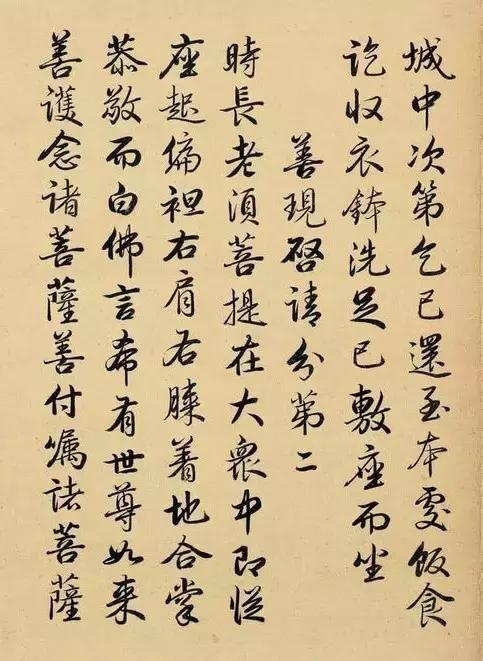 城中次第乞已還至本處飯食
訖收衣鉢洗足已敷座而坐
善現啓請分第二
時長老須菩提在大衆中即從
座起偏袒右肩右膝着地合掌
恭敬而白佛言希有世尊如来
善護念諸菩薩善付囑諸菩薩